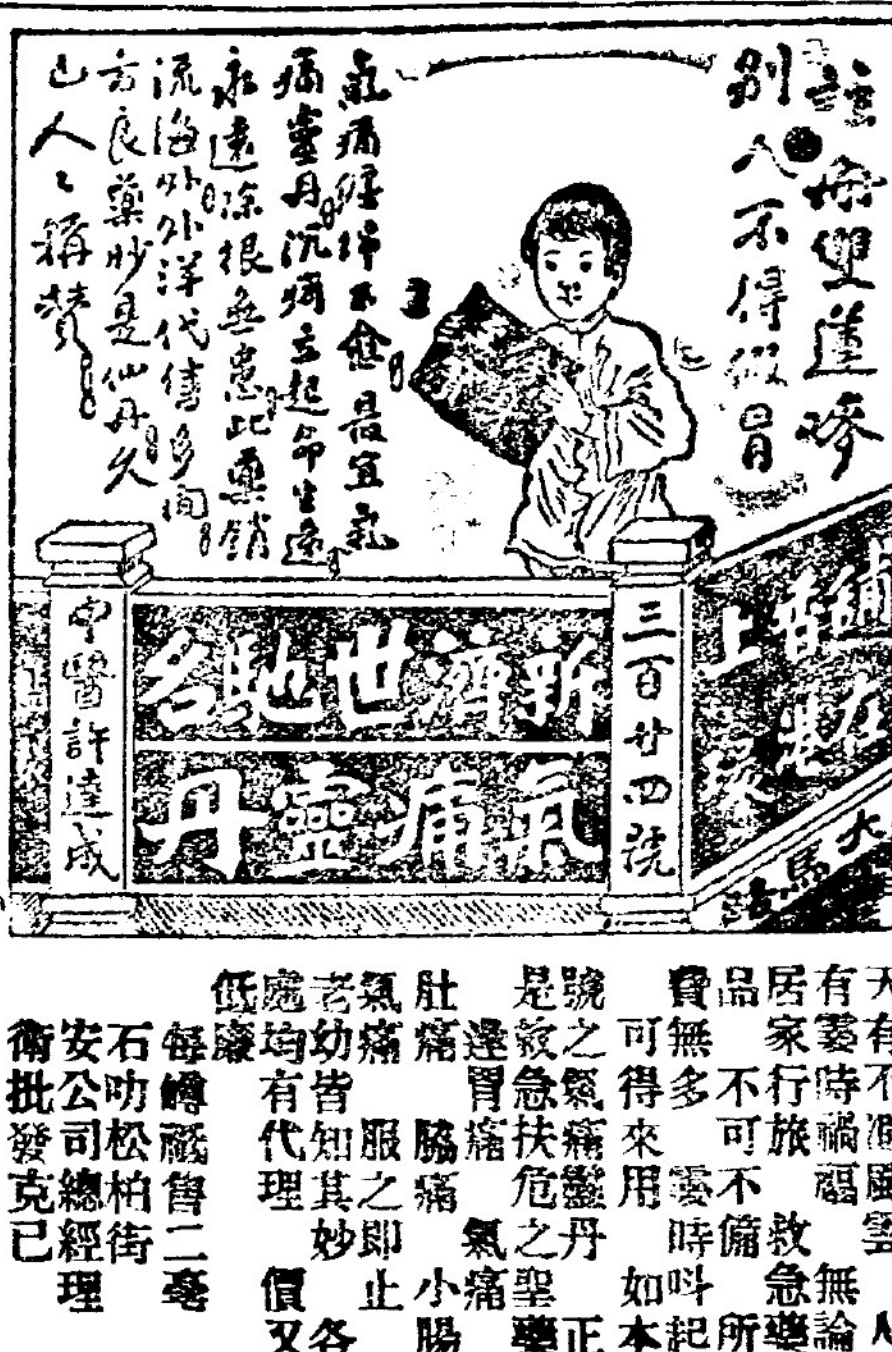 註冊雙蓮嘜
別人不得假冒
氣痛纏綿不愈最宜氣
痛靈丹沉疴立起命生還
永遠除根無患此藥銷
流海外外洋代售多间
方良藥妙是仙丹久
已人々稱贊
新濟世馳名
氣痛靈丹
三百廿四號
中醫許達成
舖在
香港
上環
大馬路
天有不測風雲 人
有霎時禍福 無論
居家行旅 救急藥
品 不可不備 所
費無多 霎時叫起
可得來用 如本
號之氣痛靈丹 正
是救急扶危之聖藥
逢胃痛 氣痛
肚痛 脇痛 小腸
氣痛 服之即止
老幼皆知其妙 各
處均有代理 價又
低廉
每罇祗售二毫
石叻松柏街
安公司總經理
批發克已